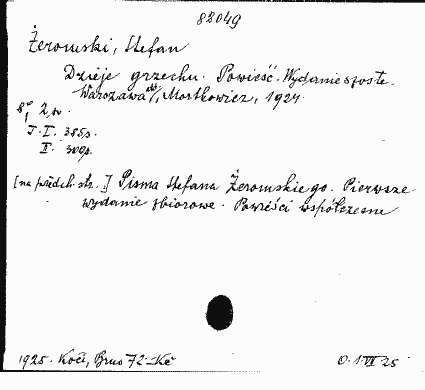 82049
Żeromski, Stefan
Dzieje grzechu. Powieść. Wydanie szóste.
Warszawa, Mortkowicz, 1927.
8°, 2 sv.
T. I. 385s.
II. 300s.
[na předch. str.:] Pisma Stefana Żeromskiego. Pierwsze
wydanie zbiorowe. Powieści współczesne
1928. Kočí, Brno 72 Kč
O. 1. VI 28